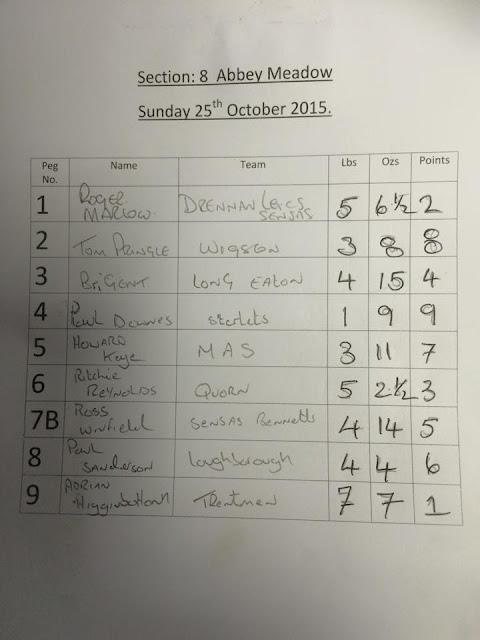 Section: 8 Abbey Meadow
Sunday 25th October 2015.
Peg No. Name Team Lbs Ozs Points
1 ROGER MARLOW DRENNAN LEICS SENSAS 5 6 ½ 2
2 TOM PRINGLE WIGSTON 3 8 8
3 BRIGENT LONG EATON 4 15 4
4 Paul Downes Starlets 1 9 9
5 HOWARD Kaye M A S 3 11 7
6 Ritchie REYNOLDS QUORN 5 2 ½ 3
7B ROSS Winfield SENSAS Bennetts 4 14 5
8 Paul SANDERSON Loughborough 4 4 6
9 ADRIAN Higginbottom Trentmen 7 7 1